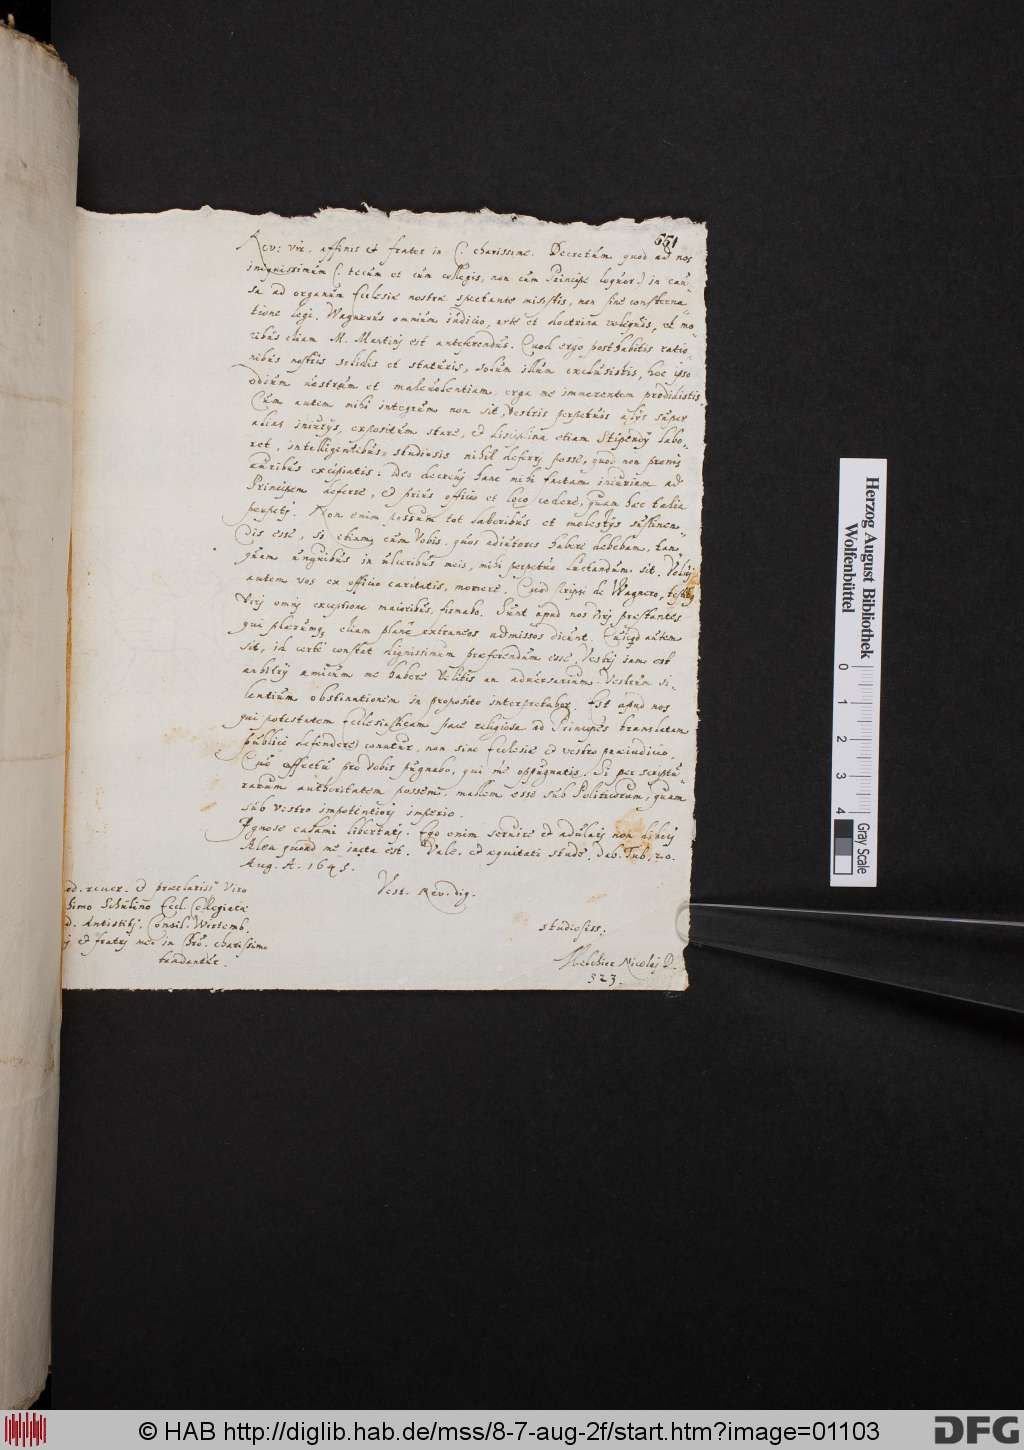 551
Rev: vir. affinis et frater in C. charissime. Decretum quod ad nos
indignissimum (: tecum et cum collegis, non cum Principe loquor:) in cau-
sa ad organum Ecclesiæ nostræ spectante misistis, non sine consterna
tione legi. Wagnerus omnium iudicio, arte et doctrina reliquis, et mo-
ribus etiam M. Martinj est anteferendus. Quod ergo posthabitis ratio-
nibus nostris solidis et  solum illum exclusistis, hoc ipso
odium vestrum et malevolentiam erga me immerentem prodidistis
Cum autem mihi integrum non sit, vestris perpetuo alijs super
alias iniurijs, expositum stare, et disciplina etiam Stipendij labo-
ret, intelligentibus, studiosis nihil deferrj posse, quod non pronis
auribus excipiatis: Ideo decrevj hanc mihi factam iniuriam ad
Principem deferre, et prius officio et loco cedere, quam hæc talia
perpetj. Non enim possum tot laboribus et molestijs sustinen
dis esse, si etiam cum Vobis, quos adiutores habere debebam, tan-
quam unguibus in ulceribus meis, mihi perpetuo luctandum sit. Velim
autem vos ex officio caritatis, monere, Quod scripsi de Wagnero, testibus
Viris omnj exceptione maioribus, firmabo. Sunt apud nos Virj præstantes
qui plerumq etiam plane extraneos admissos dicunt. Quicqd autem
sit, id certe constet dignissimum præferendum esse. Vestrj iam est
arbitrij amicum me habere velitis an adversarium. Vestrum si-
lentium obstinationem in proposito interpretabor. Est apud nos
qui potestatem Ecclesiasticam pace religiosa ad Principes translatam
publice defendere conatur, non sine Ecclesiæ et vestro præiudicio
Quo affectu pro vobis pugnabo, qui me oppugnatis. Si per scriptu-
rarum authoritatem possem, mallem esse sub Politicorum, quam
sub vestro impotentiorj imperio.
Ignosce calami libertatj. Ego enim servire et adularj non didicj
Alea quoad me iacta est. Vale, et æquitati stude. Dab. Tub. 20.
Aug. A. 1645.
Vest. Rev. dig.
studiosiss.
Melchior Nicolaj D.
ad. rever. et præclariss Viro
simo Schülino Eccl. Collegiatæ
d. Antistitj. Consil. Wirtemb.
j et fratrj meo in Chro. charissimo
tradantur.
523.
Herzog August Bibliothek
Wolfenbüttel
0 1 2 3 4
Gray Scale
© HAB http://diglib.hab.de/mss/8-7-aug-2f/start.htm?image=01103
DFG